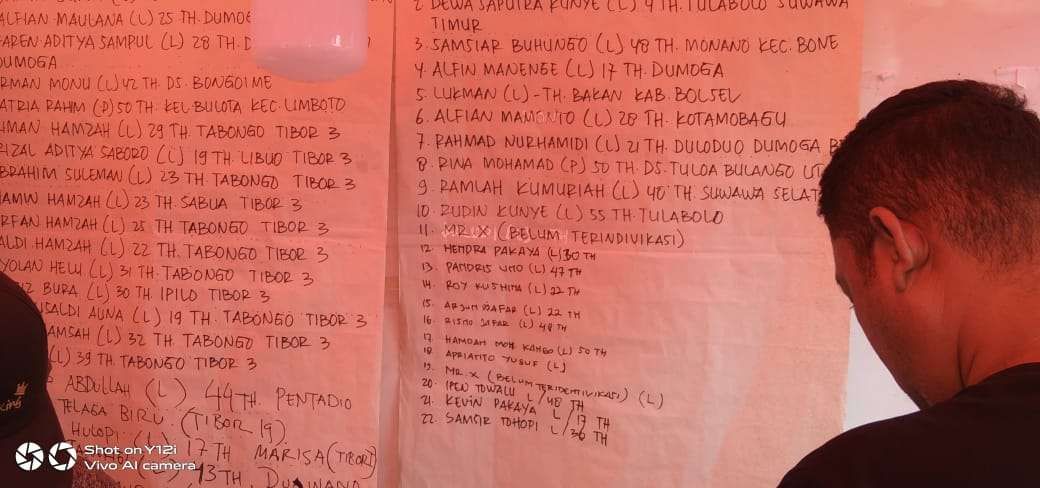 ALFIAN MAULANA (L) 25 TH. DUMOG
AREN ADITYA SAMPUL (L) 28 TH. D
DUMOGA
RMAN MONU (L) 42 TH. DS. BONGOIME
ATRIA RAHIM (P) 50 TH. KEL. BULOTA KEC. LIMBOTO
HMAN HAMZAH (L) 29 TH TABONGO TIBOR 3
RIZAL ADITYA SABORO (L) 19 TH. LIBUO TIBOR 3
BRAHIM SULEMAN (L) 23 TH TABONGO TIBOR 3
AMIN HAMZAH (L) 23 TH. SABUA TIBOR 3
RFAN HAMZAH (L) 25 TH TABONGO TIBOR 3
ALDI HAMZAH (L) 22 TH. TABONGO TIBOR 3
YOLAN HELU (L) 31 TH. TABONGO TIBOR 3
IZ BURA (L) 30 TH. IPILO TIBOR 3
ISALDI AUNA (L) 19 TH. TABONGO TIBOR 3
AMSAH (L) 32 TH. TABONGO TIBOR 3
(L) 39 TH. TABONGO TIBOR 3
ABDULLAH (L) 44 TH. PENTADIO
TELAGA BIRU (TIBOR 19)
HULOPI (L) 17 TH MARISA (TIBOR
13 TH,
2 DEWA SAPUTRA KUNYE (L) 9 TH. TULABOLO SUWAWA
TIMUR
3. SAMSIAR BUHUNGO (L) 48 TH. MONANO KEC. BONE
4. ALFIN MANENGE (L) 17 TH. DUMOGA
5. LUKMAN (L) - TH. BAKAN KAB. BOLSEL
6. ALFIAN MAMONTO (L) 28 TH. KOTAMOBAGU
7. RAHMAD NURHAMIDI (L) 21 TH. DULODUO DUMOGA B
8. RINA MOHAMAD (P) 50 TH. DS. TULOA BULANGO UT
9. RAMLAH KUMURIAH (L) 40 TH. SUWAWA SELAT
10. RUDIN KUNYE (L) 55 TH. TULABOLO
11. MR. X (BELUM TERINDIVIKASI)
12. HENDRA PAKAYA (L) 30 TH
13. PANDRIS UNO (L) 47 TH
14. ROY KUSHIMA (L) 22 TH
15. ARJUN DJAFAR (L) 22 TH
16. RISNO JAFAR (L) 48 TH
17. HAMDAN MOH KANGO (L) 50 TH
18 APRIANTO YUSUF (L)
19. MR. X (BELUM TERIDENTIVIKASI) (L)
20. IPEN TOWALU L / 48 TH
21. KEVIN PAKAYA L / 17 TH
22. SAMSIR TOHOPI L / 36 TH
Shot on Y12i
Vivo AI camera